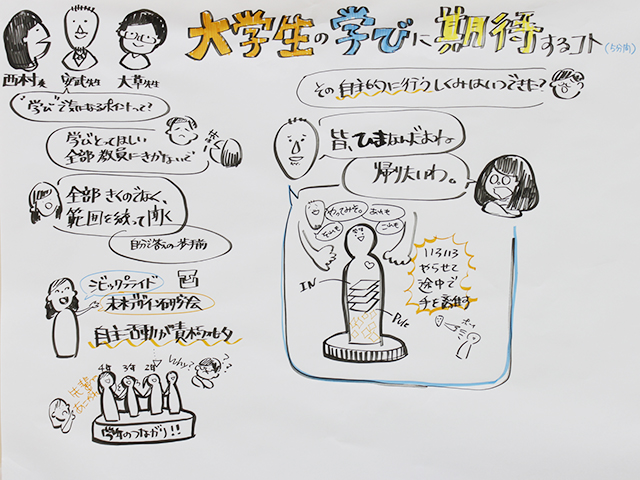 大学生の学びに期待するコト(5分間)
西村さん
安武先生
大草先生
"学び"で気になるポイントって?
学びとってほしい
全部教員にきかないで
全部きくのでなく、
範囲を絞って聞く
自分で答えの歩手前
シビックプライド
未来デザイン研究会
自主活動が積極的
4年 3年 2年
Why?
??
先輩
学年のつながり!!
その自主的に行うしくみはいつできた?
皆、ひまなんだよね
帰りたいわ。
やってみる。
あれも
これも
IN
Put
いろいろ
やらせて
途中で
手を離す